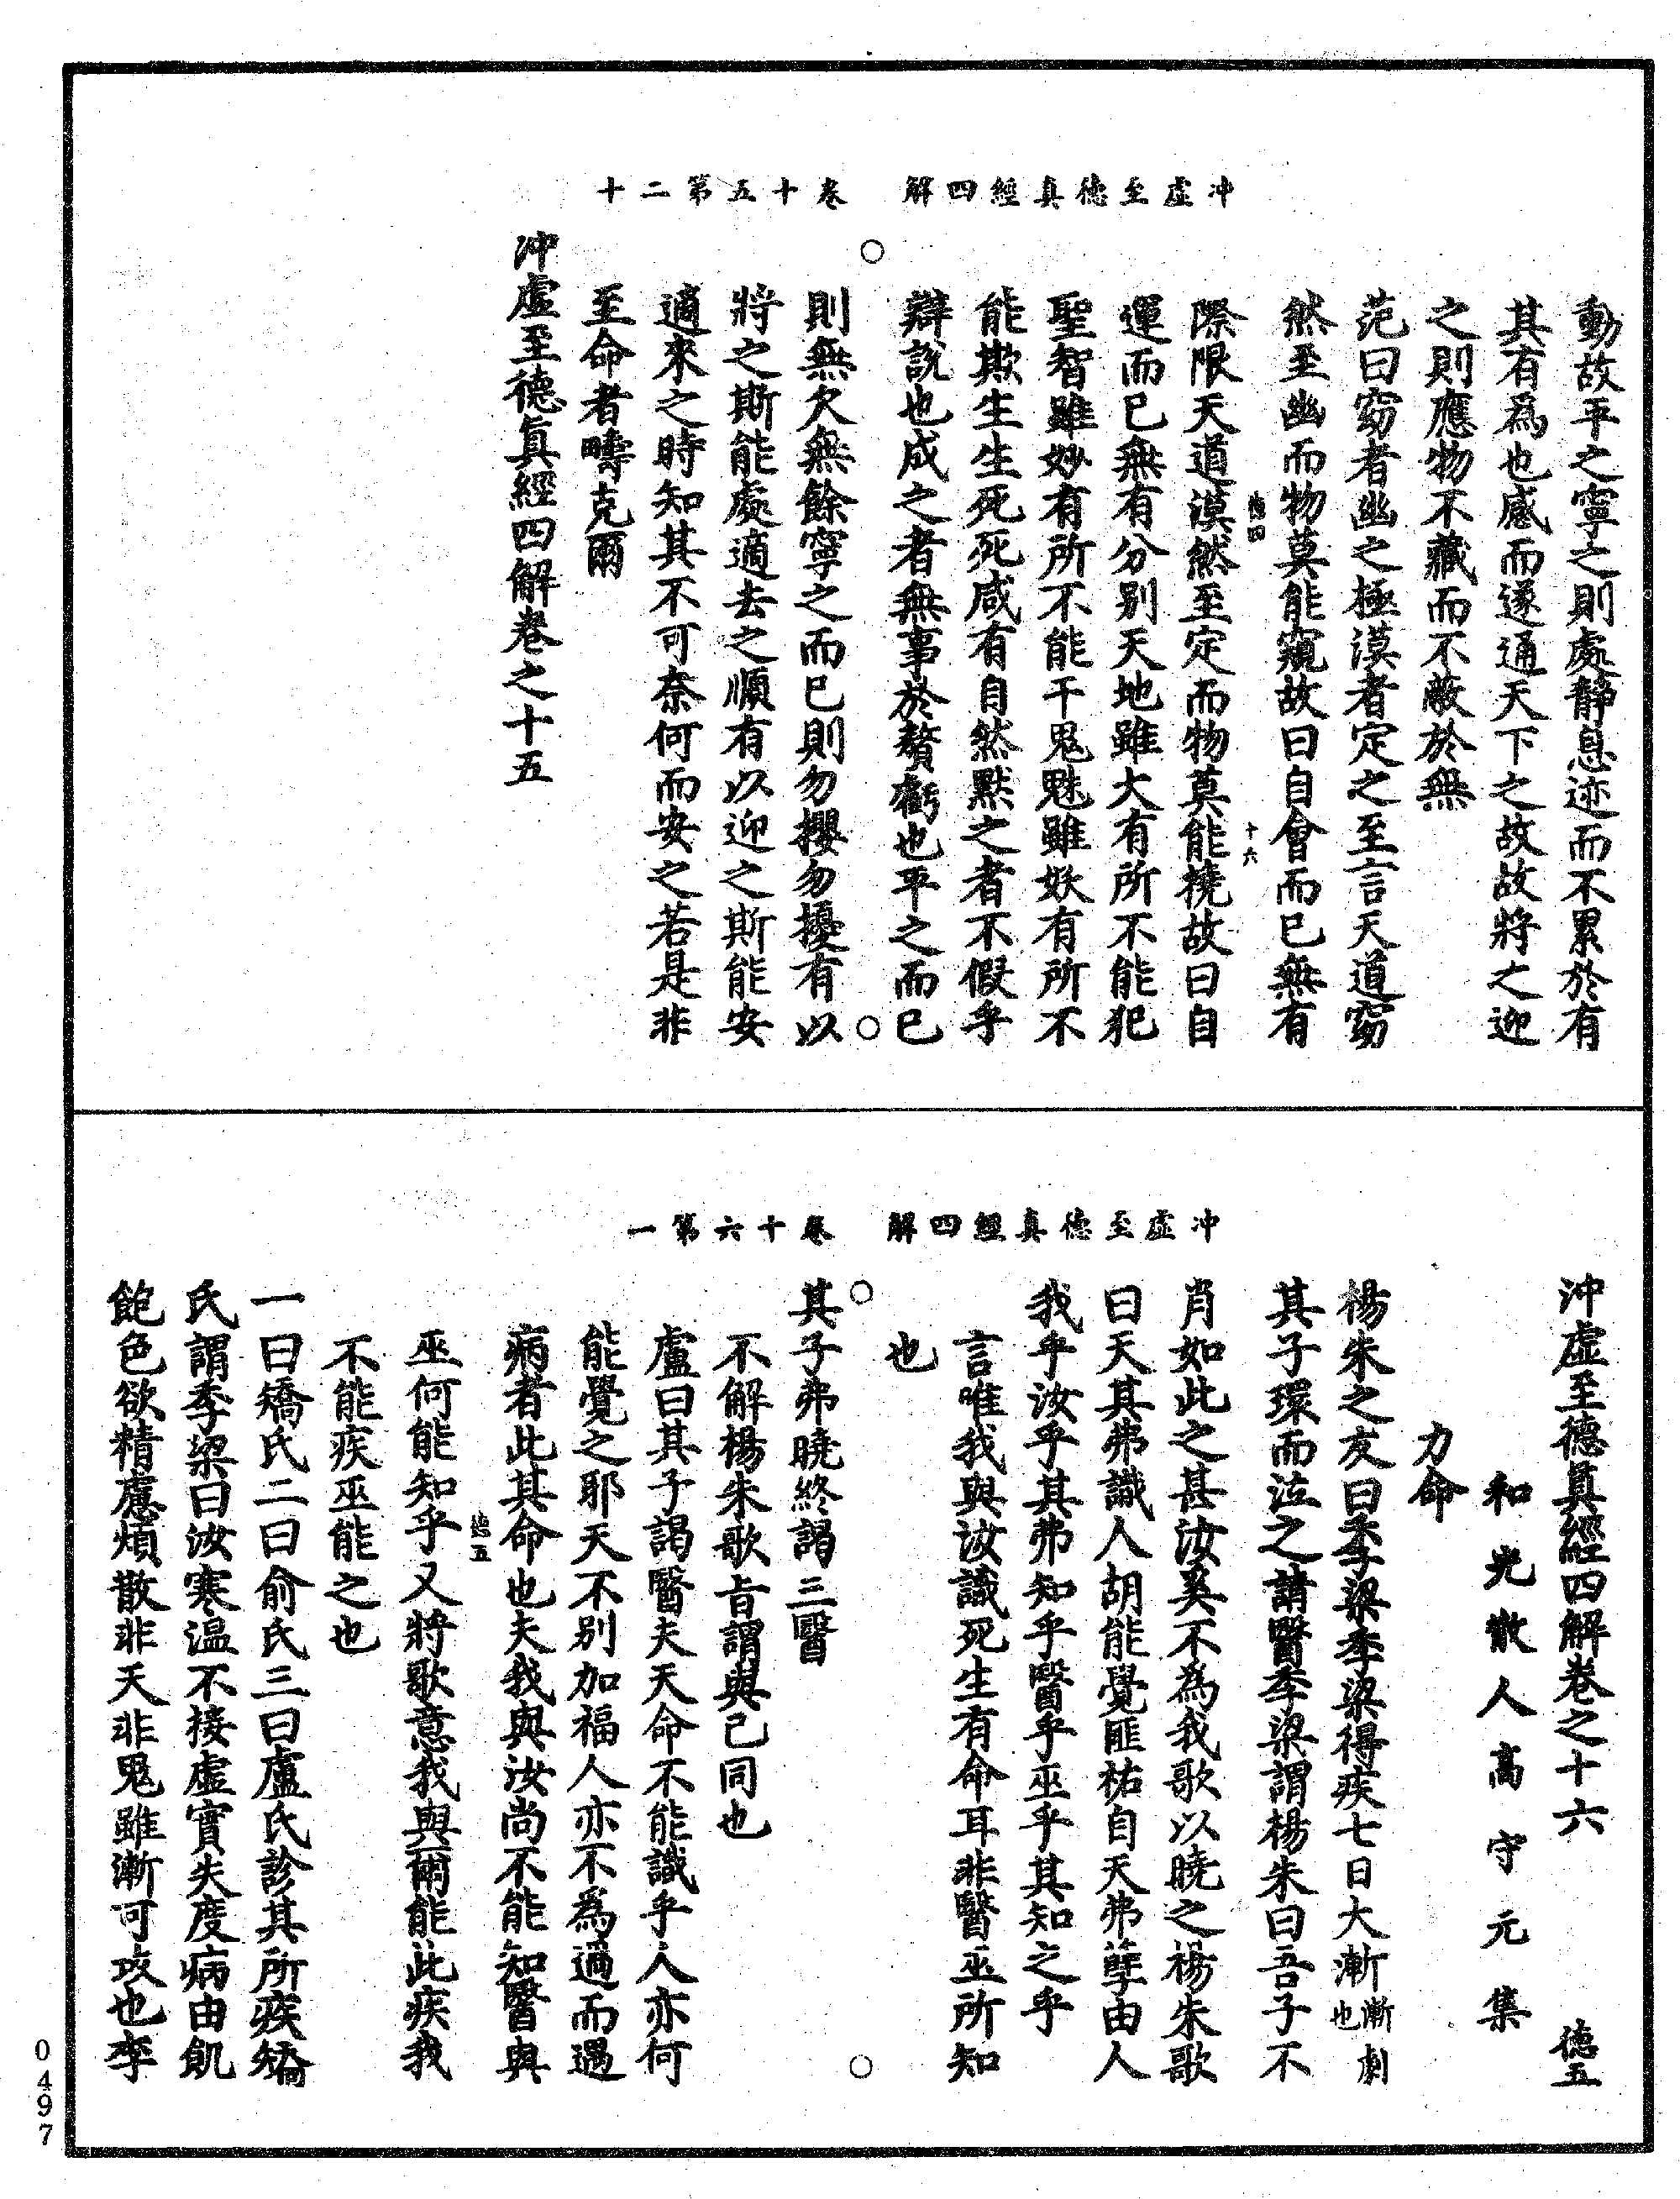 冲虛至德真經四解　卷十五第二十
動故平之寧之則處静息迹而不累於有
其有為也感而遂通天下之故故將之迎
之則應物不藏而不蔽於無
范曰窈者幽之極漠者定之至言天道窈
然至幽而物莫能窺故曰自會而已無有
德四　十六
際限天道漠然至定而物莫能撓故曰自
運而已無有分别天地雖大有所不能犯
聖智雖妙有所不能干鬼魅雖妖有所不
能欺生生死死咸有自然默之者不假乎
辯説也成之者無事於贅虧也平之而已
則無欠無餘寧之而已則勿攖勿擾有以
將之斯能處適去之順有以迎之斯能安
適來之時知其不可奈何而安之若是非
至命者疇克爾
沖虛至德真經四解卷之十五
冲虛至德真經四解　卷十六第一
沖虛至德真經四解卷之十六　德五
和光散人高守元集
力命
楊朱之友曰季梁季梁得疾七日大漸漸劇也
其子環而泣之請醫季梁謂楊朱曰吾子不
肖如此之甚汝奚不為我歌以曉之楊朱歌
曰天其弗識人胡能覺匪祐自天弗孽由人
我乎汝乎其弗知乎醫乎巫乎其知之乎
言唯我與汝識死生有命耳非醫巫所知
也
其子弗曉終謁三醫
不解楊朱歌旨謂與己同也
盧曰其子謁醫夫天命不能識乎人亦何
能覺之耶天不别加福人亦不為過而遇
病者此其命也夫我與汝尚不能知醫與
德五
巫何能知乎又將歌意我與爾能此疾我
不能疾巫能之也
一曰矯氏二曰俞氏三曰盧氏診其所疾矯
氏謂季梁曰汝寒温不接虛實失度病由飢
飽色欲精慮煩散非天非鬼雖漸可攻也季
0497